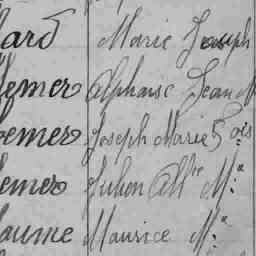 ard Marie Joseph
emer Alphonse Jean M
emer Joseph Marie Fois
emer Julien All M.a
aume Maurice M.a